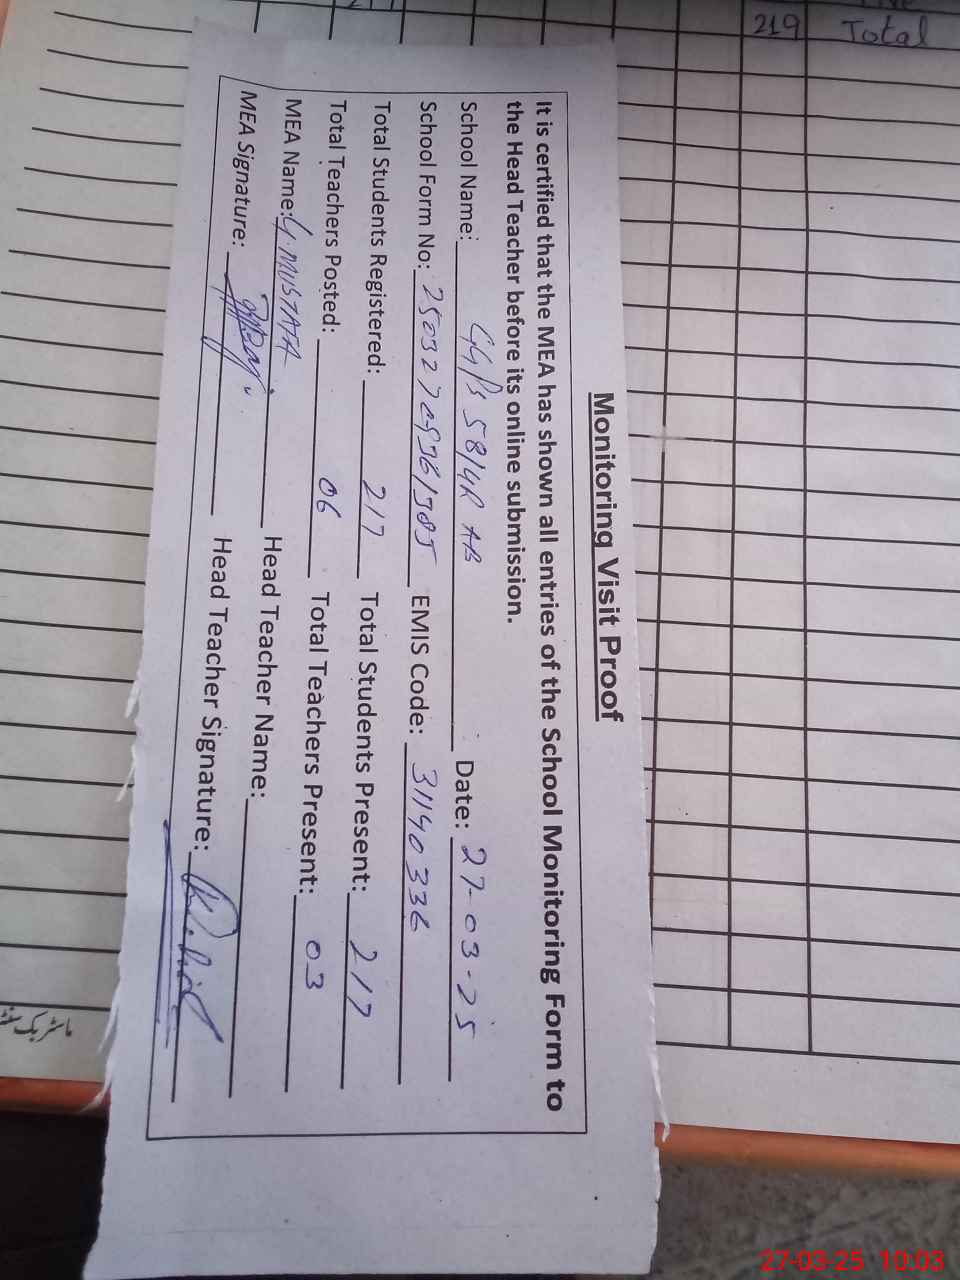 219 Total
Monitoring Visit Proof
It is certified that the MEA has shown all entries of the School Monitoring Form to
the Head Teacher before its online submission.
School Name: GGPS 58/4R AB Date: 27-03-25
School Form No: EMIS Code: 31140336
Total Students Registered: 217 Total Students Present: 217
Total Teachers Posted: 06 Total Teachers Present: 03
MEA Name: G. MUSTAFA Head Teacher Name:
MEA Signature: Head Teacher Signature:
27-03-25 10:03